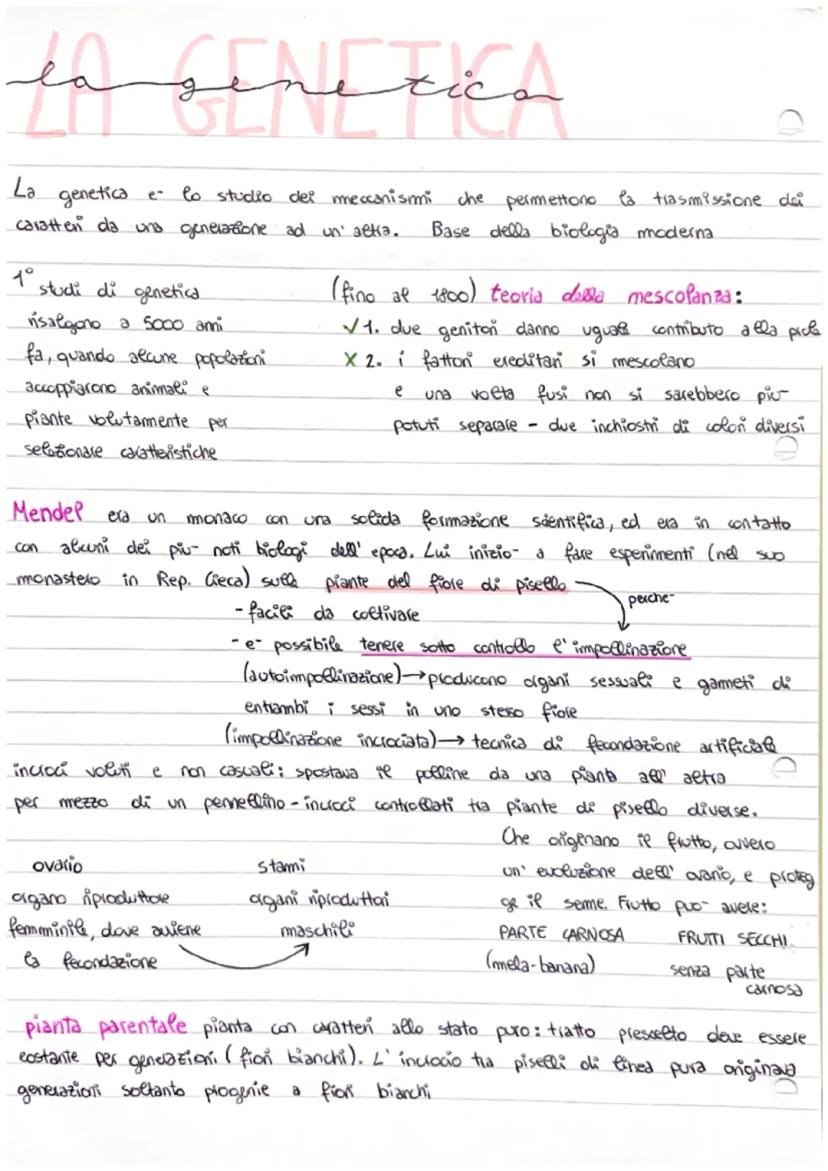 LA GENETICA
la genetica
La genetica e- lo studio dei meccanismi che permettono la trasmissione dei
caratteri da una generazione ad un'altra. Base della biologia moderna
1° studi di genetica
risalgono a 5000 anni
fa, quando alcune popolazioni
accoppiarono animali e
piante volutamente per
selezionare caratteristiche
(fino al 1800) teoria della mescolanza:
✓ 1. due genitori danno uguale contributo alla prole
X 2. i fattori ereditari si mescolano
e una volta fusi non si sarebbero piu-
potuti separare - due inchiostri di colori diversi
Mendel era un monaco con una solida formazione scientifica, ed era in contatto
con alcuni dei piu- noti biologi dell'epoca. Lui inizio- a fare esperimenti (nel suo
monastero in Rep. Ceca) sulla piante del fiore di pisello
perche-
- facili da coltivare
- e- possibile tenere sotto controllo l'impollinazione
(autoimpollinazione) → producono organi sessuali e gameti di
entrambi i sessi in uno stesso fiore
(impollinazione incrociata) → tecnica di fecondazione artificiale
incroci voluti e non casuali: spostava il polline da una pianta all'altra
per mezzo di un pennellino - incroci controllati tra piante di pisello diverse.
ovario
organo riproduttore
femminile, dove avviene
la fecondazione
stami
organi riproduttori
maschili
Che originano il frutto, ovvero
un'evoluzione dell'ovario, e proteg
ge il seme. Frutto puo- avere:
PARTE CARNOSA FRUTTI SECCHI
(mela-banana) senza parte
carnosa
pianta parentale pianta con caratteri allo stato puro: tratto prescelto deve essere
costante per generazioni (fiori bianchi). L'incrocio tra piselli di linea pura originava
generazioni soltanto progenie a fiori bianchi